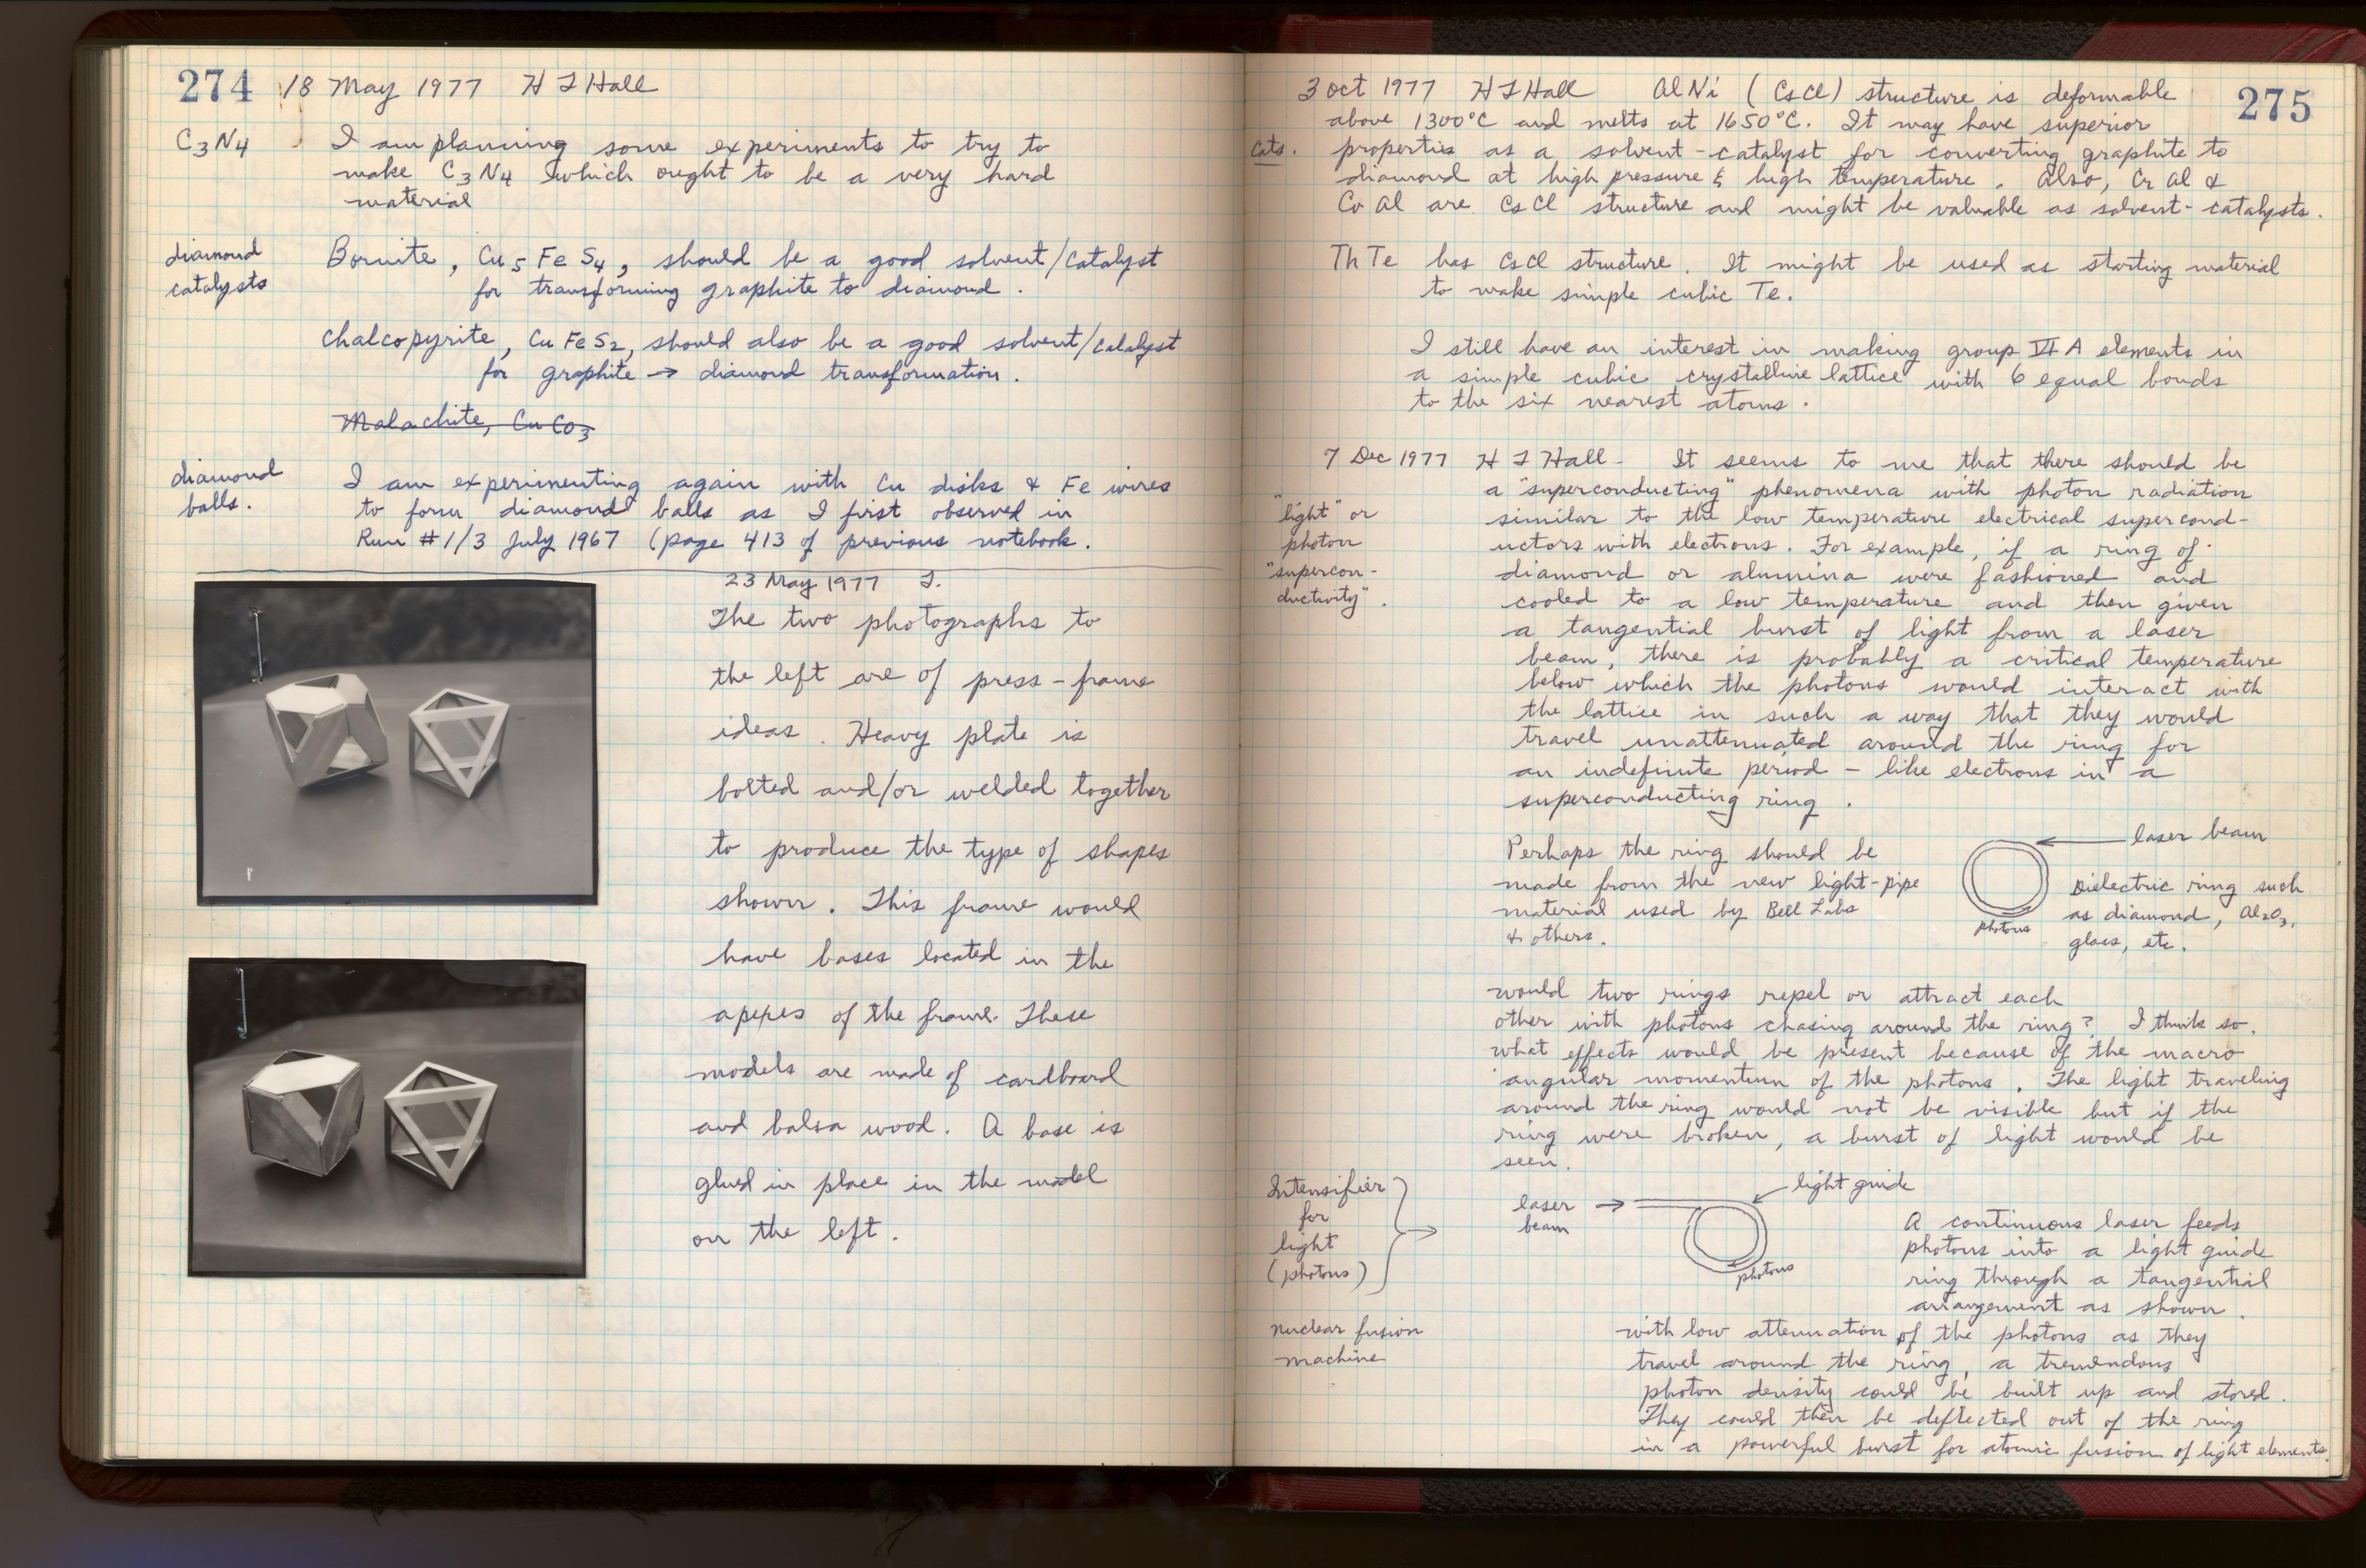 274 18 May 1977 H T Hall
C3N4 I am planning some experiments to try to
make C3N4 which ought to be a very hard
material
diamond Bornite, Cu5FeS4, should be a good solvent/catalyst
catalysts for transforming graphite to diamond.
Chalcopyrite, CuFeS2, should also be a good solvent/catalyst
for graphite → diamond transformation.
Malachite, CuCO3
diamond I am experimenting again with Cu disks & Fe wires
balls. to form diamond balls as I first observed in
Run #1/3 July 1967 (page 413 of previous notebook.
23 May 1977 T.
The two photographs to
the left are of press-frame
ideas. Heavy plate is
bolted and/or welded together
to produce the type of shapes
shown. This frame would
have bases located in the
apexes of the frame. These
models are made of cardboard
and balsa wood. A base is
glued in place in the model
on the left.
3 Oct 1977 H T Hall AlNi (CsCl) structure is deformable 275
above 1300°C and melts at 1650°C. It may have superior
cats. properties as a solvent-catalyst for converting graphite to
diamond at high pressure & high temperature. Also, Cr Al &
Co Al are CsCl structure and might be valuable as solvent-catalysts.
ThTe has CsCl structure. It might be used as starting material
to make simple cubic Te.
I still have an interest in making group VI A elements in
a simple cubic crystalline lattice with 6 equal bonds
to the six nearest atoms.
7 Dec 1977 H T Hall - It seems to me that there should be
a "superconducting" phenomena with photon radiation
"light" or similar to the low temperature electrical supercond-
photon uctors with electrons. For example, if a ring of
"supercon- diamond or alumina were fashioned and
ductivity". cooled to a low temperature and then given
a tangential burst of light from a laser
beam, there is probably a critical temperature
below which the photons would interact with
the lattice in such a way that they would
travel unattenuated around the ring for
an indefinite period - like electrons in a
superconducting ring.
Perhaps the ring should be
made from the new light-pipe
material used by Bell Labs
& others.
laser beam
Dielectric ring such
as diamond, Al2O3,
glass, etc.
photons
would two rings repel or attract each
other with photons chasing around the ring? I think so.
what effects would be present because of the macro
angular momentum of the photons. The light traveling
around the ring would not be visible but if the
ring were broken, a burst of light would be
seen.
Intensifier
for
light
(photons)
laser →
beam
light guide
photons
A continuous laser feeds
photons into a light guide
ring through a tangential
arrangement as shown.
nuclear fusion
machine
with low attenuation of the photons as they
travel around the ring, a tremendous
photon density could be built up and stored.
They could then be deflected out of the ring
in a powerful burst for atomic fusion of light elements.